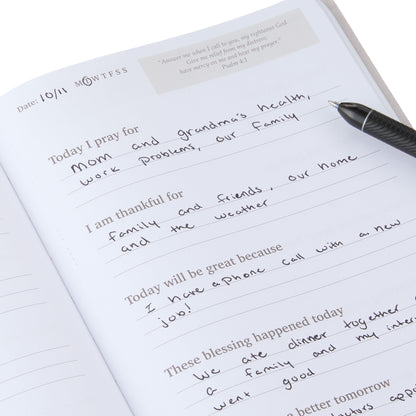 "Answer me when I call to you, my righteous God.
Give me relief from my distress;
have mercy on me and hear my prayer."
Psalm 4:1
Date: 10/11 M T W T F S S
Today I pray for
Mom and grandma's health,
work problems, our family
I am thankful for
family and friends, our home
and the weather
Today will be great because
I have a phone call with a new
job!
These blessing happened today
We ate dinner together
a family and my inter
went good
better tomorrow
appo